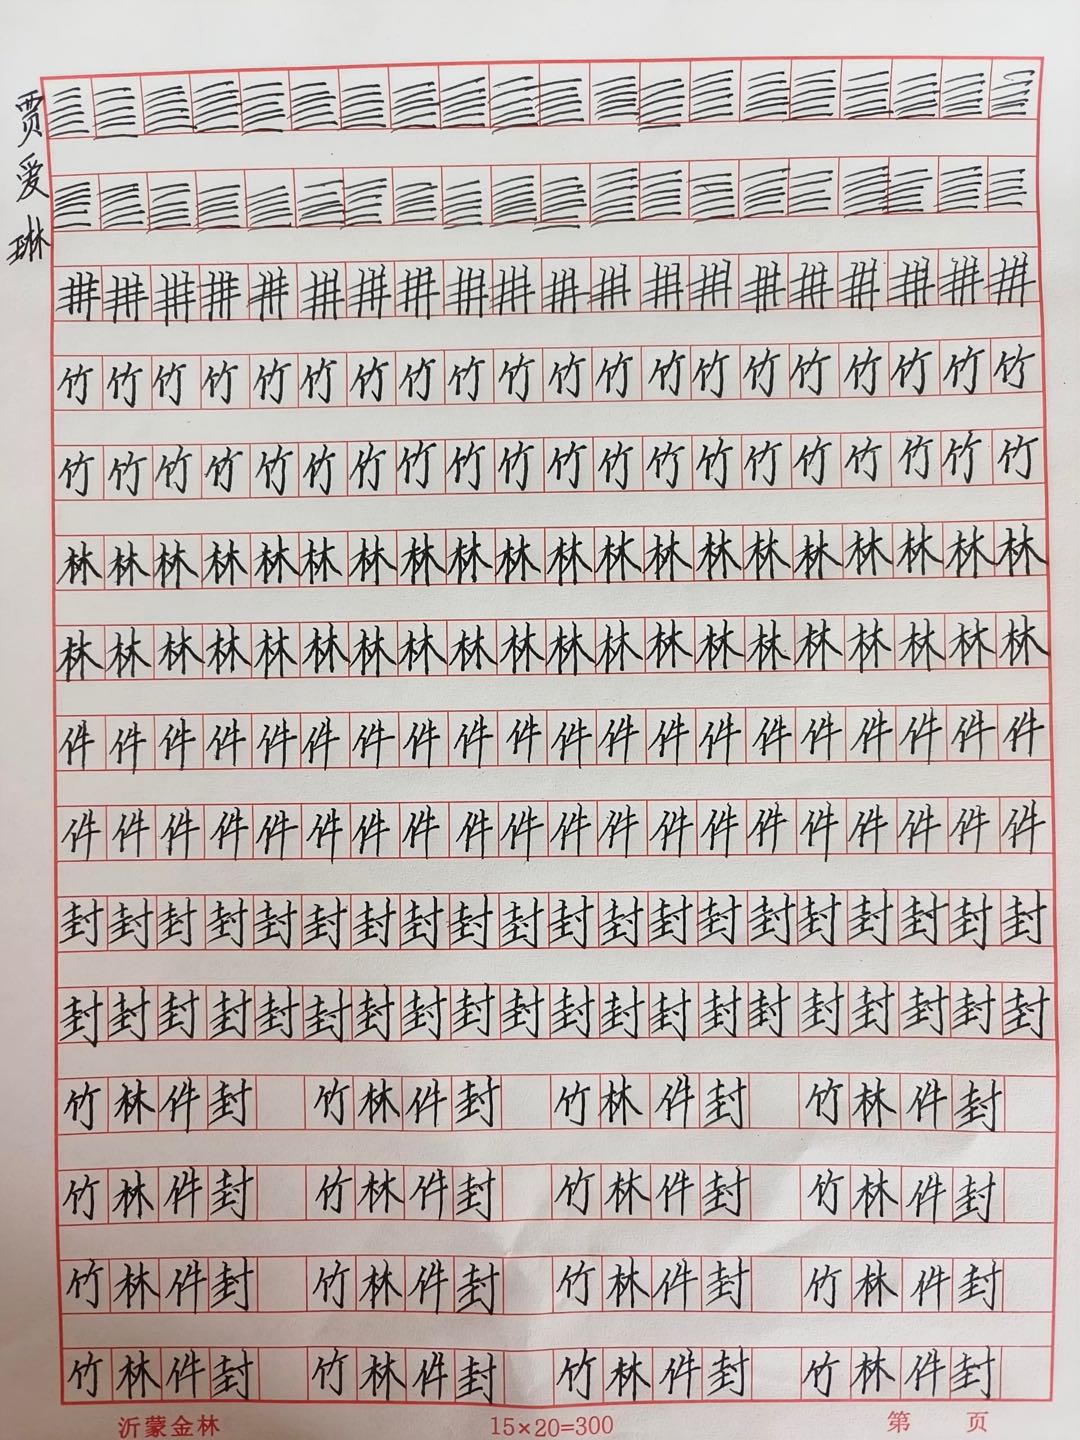 贾爱琳
竹竹竹竹竹竹竹竹竹竹竹竹竹竹竹竹竹竹竹竹
竹竹竹竹竹竹竹竹竹竹竹竹竹竹竹竹竹竹竹竹
林林林林林林林林林林林林林林林林林林林林
林林林林林林林林林林林林林林林林林林林林
件件件件件件件件件件件件件件件件件件件件
件件件件件件件件件件件件件件件件件件件件
封封封封封封封封封封封封封封封封封封封封
封封封封封封封封封封封封封封封封封封封封
竹林件封 竹林件封 竹林件封 竹林件封
竹林件封 竹林件封 竹林件封 竹林件封
竹林件封 竹林件封 竹林件封 竹林件封
竹林件封 竹林件封 竹林件封 竹林件封
沂蒙金林 15×20=300 第 页